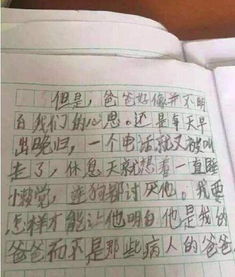 但是，爸爸好像并不明
白我们的心思。还是每天早
出晚归，一个电话就又被叫
走了，休息天就想着一直睡
懒觉，连狗都讨厌他。我要
怎样才能让他明白他是我的
爸爸而不是那些病人的爸爸